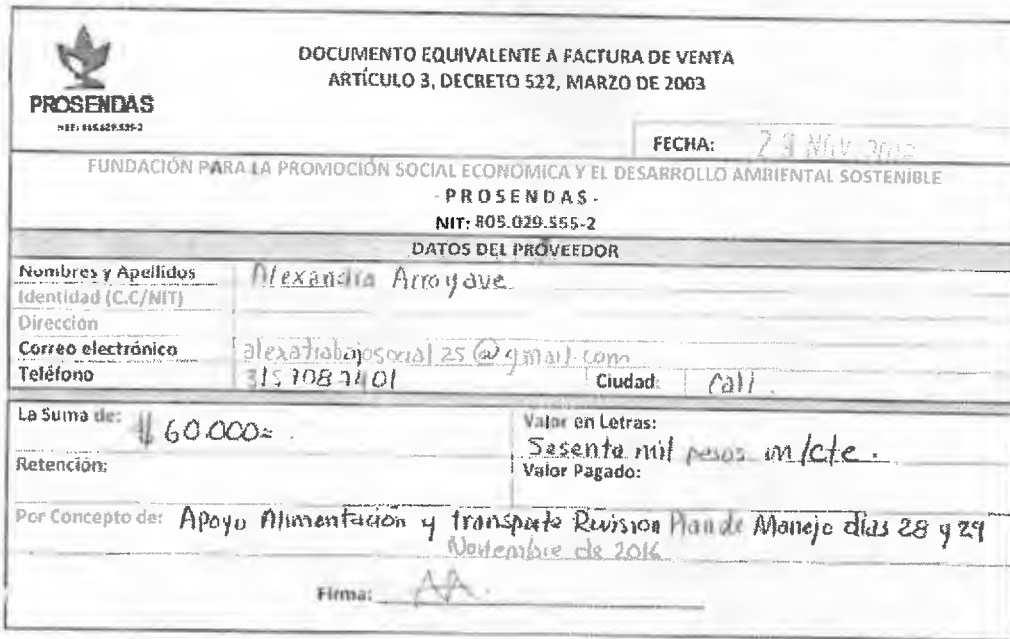 DOCUMENTO EQUIVALENTE A FACTURA DE VENTA
ARTÍCULO 3, DECRETO 522, MARZO DE 2003
PROSENDAS
FECHA: 29 NOV
FUNDACIÓN PARA LA PROMOCIÓN SOCIAL ECONÓMICA Y EL DESARROLLO AMBIENTAL SOSTENIBLE
- PROSENDAS -
NIT: 805.029.555-2
DATOS DEL PROVEEDOR
Nombres y Apellidos Alexandra Arroyave
Identidad (C.C/NIT)
Dirección
Correo electrónico alexatrabajosocial25@gmail.com
Teléfono Ciudad: Cali.
La Suma de: $ 60.000=.
Valor en Letras:
Sesenta mil pesos m/cte.
Retención:
Valor Pagado:
Por Concepto de: Apoyo Alimentación y transporte Revision Plan de Manejo días 28 y 29
Noviembre de 2016
Firma: AA.